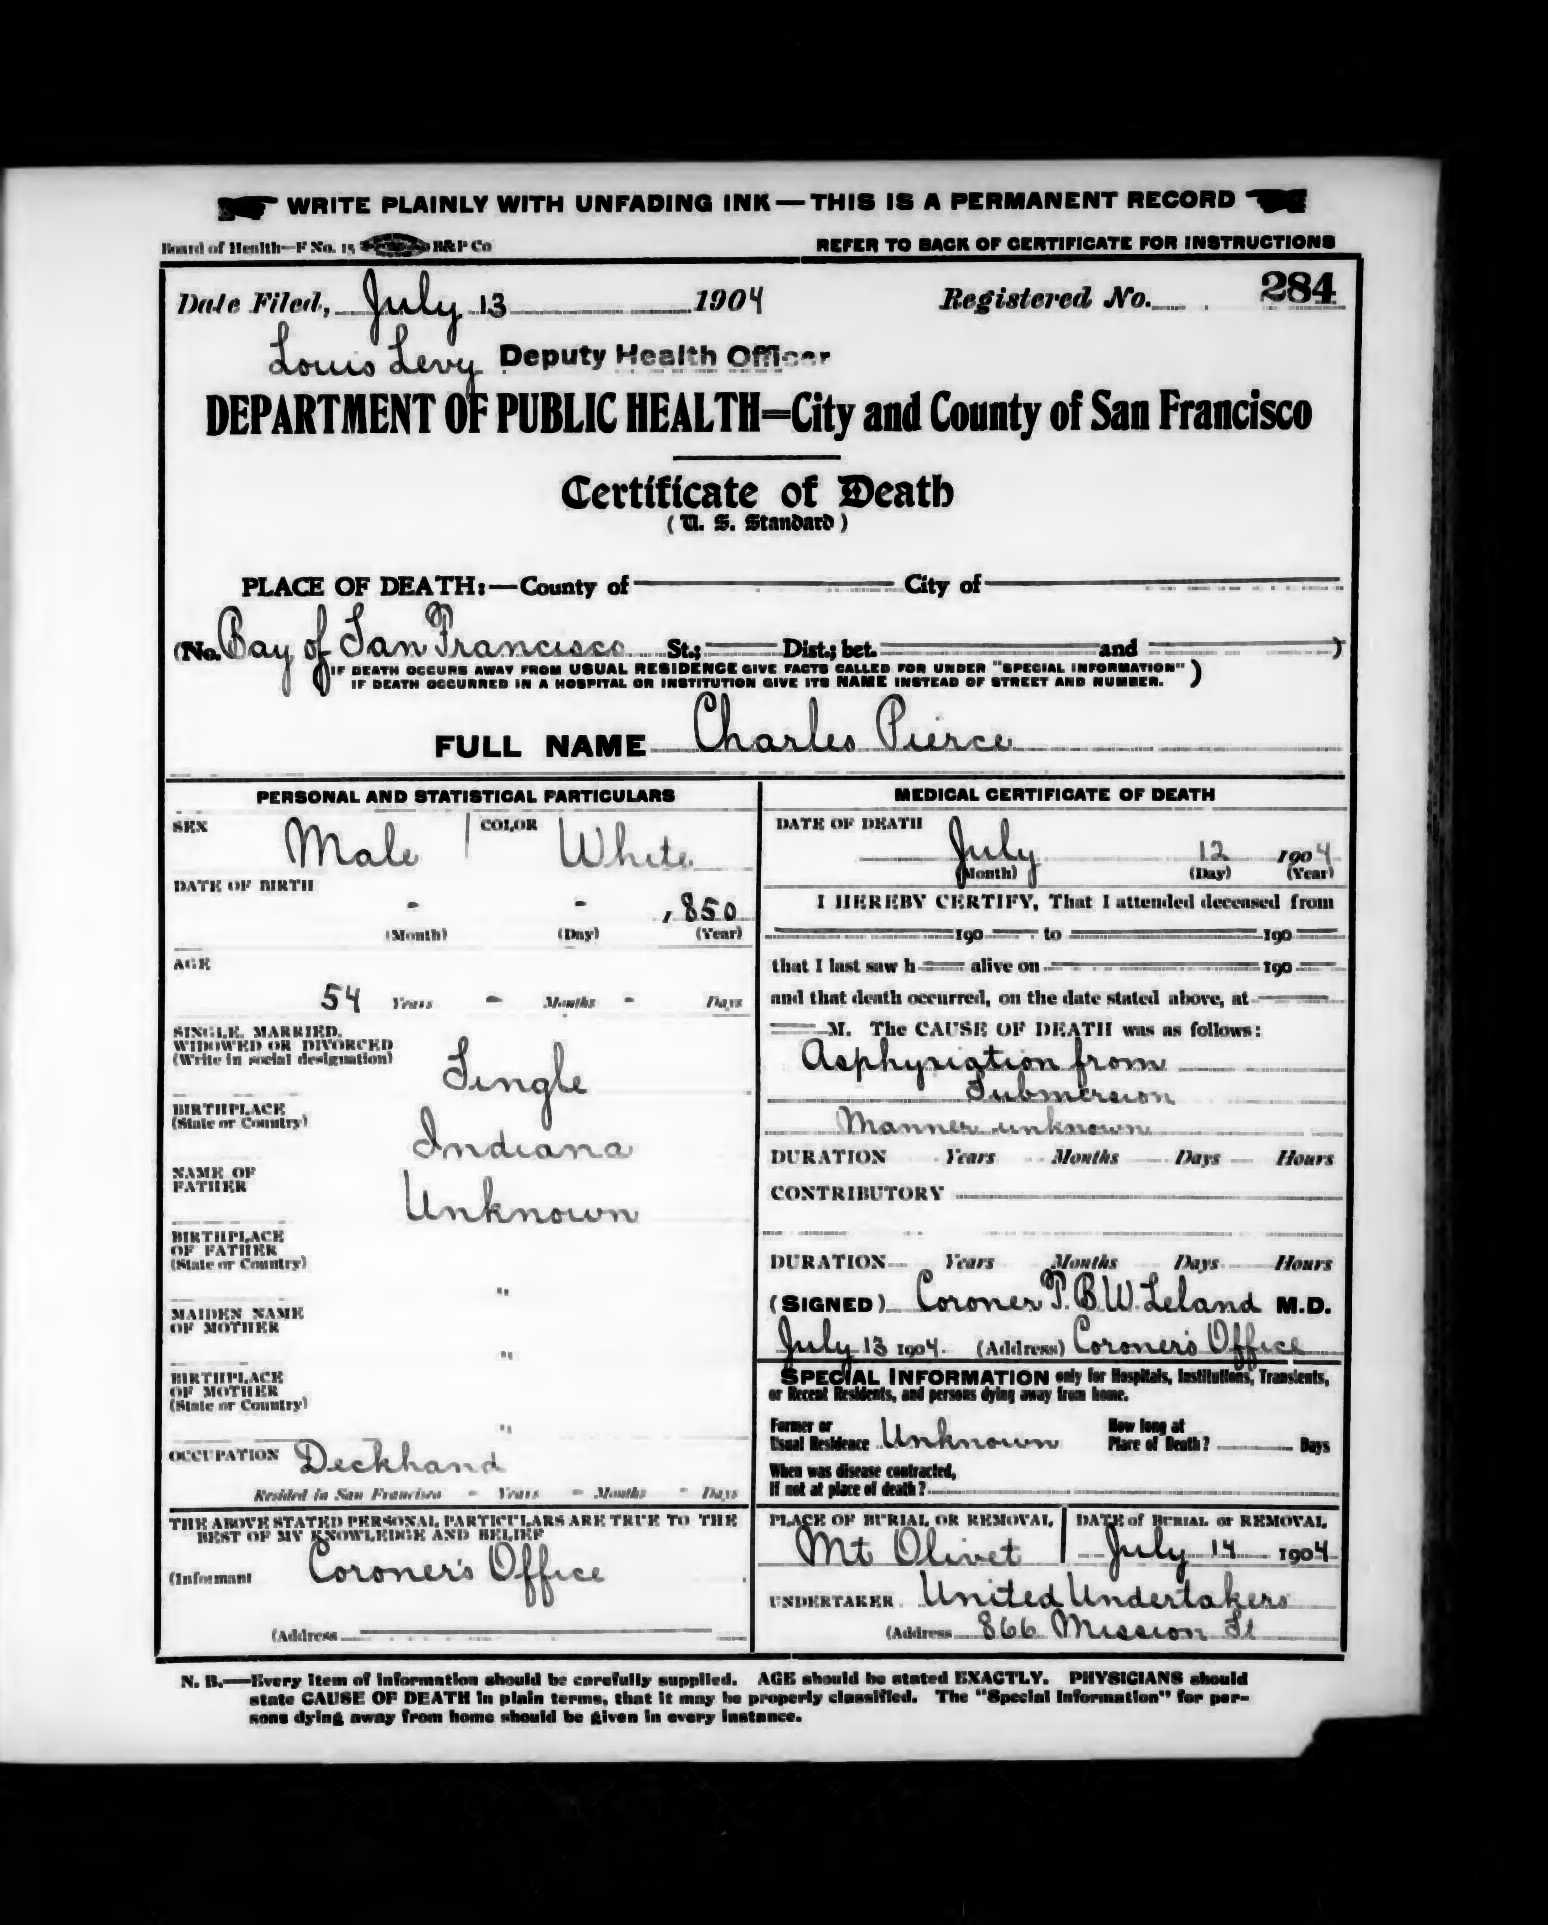 WRITE PLAINLY WITH UNFADING INK—THIS IS A PERMANENT RECORD
Board of Health—F No. 15 B&P Co REFER TO BACK OF CERTIFICATE FOR INSTRUCTIONS
Date Filed, July 13 1904 Registered No. 284
Louis Levy Deputy Health Officer
DEPARTMENT OF PUBLIC HEALTH=City and County of San Francisco
Certificate of Death
(U. S. Standard)
PLACE OF DEATH:—County of City of
(No. Bay of San Francisco St.; Dist.; bet. and )
IF DEATH OCCURS AWAY FROM USUAL RESIDENCE GIVE FACTS CALLED FOR UNDER "SPECIAL INFORMATION"
IF DEATH OCCURRED IN A HOSPITAL OR INSTITUTION GIVE ITS NAME INSTEAD OF STREET AND NUMBER. )
FULL NAME Charles Pierce
PERSONAL AND STATISTICAL PARTICULARS
SEX Male COLOR White
DATE OF BIRTH
- - 1850
(Month) (Day) (Year)
AGE
54 Years - Months - Days
SINGLE, MARRIED,
WIDOWED OR DIVORCED
(Write in social designation) Single
BIRTHPLACE
(State or Country) Indiana
NAME OF
FATHER Unknown
BIRTHPLACE
OF FATHER
(State or Country)
"
MAIDEN NAME
OF MOTHER
"
BIRTHPLACE
OF MOTHER
(State or Country)
"
OCCUPATION Deckhand
Resided in San Francisco - Years - Months - Days
THE ABOVE STATED PERSONAL PARTICULARS ARE TRUE TO THE
BEST OF MY KNOWLEDGE AND BELIEF
(Informant Coroner's Office
(Address
MEDICAL CERTIFICATE OF DEATH
DATE OF DEATH
July 12 1904
(Month) (Day) (Year)
I HEREBY CERTIFY, That I attended deceased from
190 to 190
that I last saw h alive on 190
and that death occurred, on the date stated above, at
M. The CAUSE OF DEATH was as follows:
Asphyxiation from
Submersion
Manner unknown
DURATION Years Months Days Hours
CONTRIBUTORY
DURATION Years Months Days Hours
(SIGNED) Coroner T. B. W. Leland M.D.
July 13 1904. (Address) Coroner's Office
SPECIAL INFORMATION only for Hospitals, Institutions, Transients,
or Recent Residents, and persons dying away from home.
Former or
Usual Residence Unknown
How long at
Place of Death? Days
When was disease contracted,
If not at place of death?
PLACE OF BURIAL OR REMOVAL DATE of BURIAL or REMOVAL
Mt Olivet July 14 1904
UNDERTAKER United Undertakers
(Address 866 Mission St
N. B.—Every item of information should be carefully supplied. AGE should be stated EXACTLY. PHYSICIANS should
state CAUSE OF DEATH in plain terms, that it may be properly classified. The "Special Information" for per-
sons dying away from home should be given in every instance.